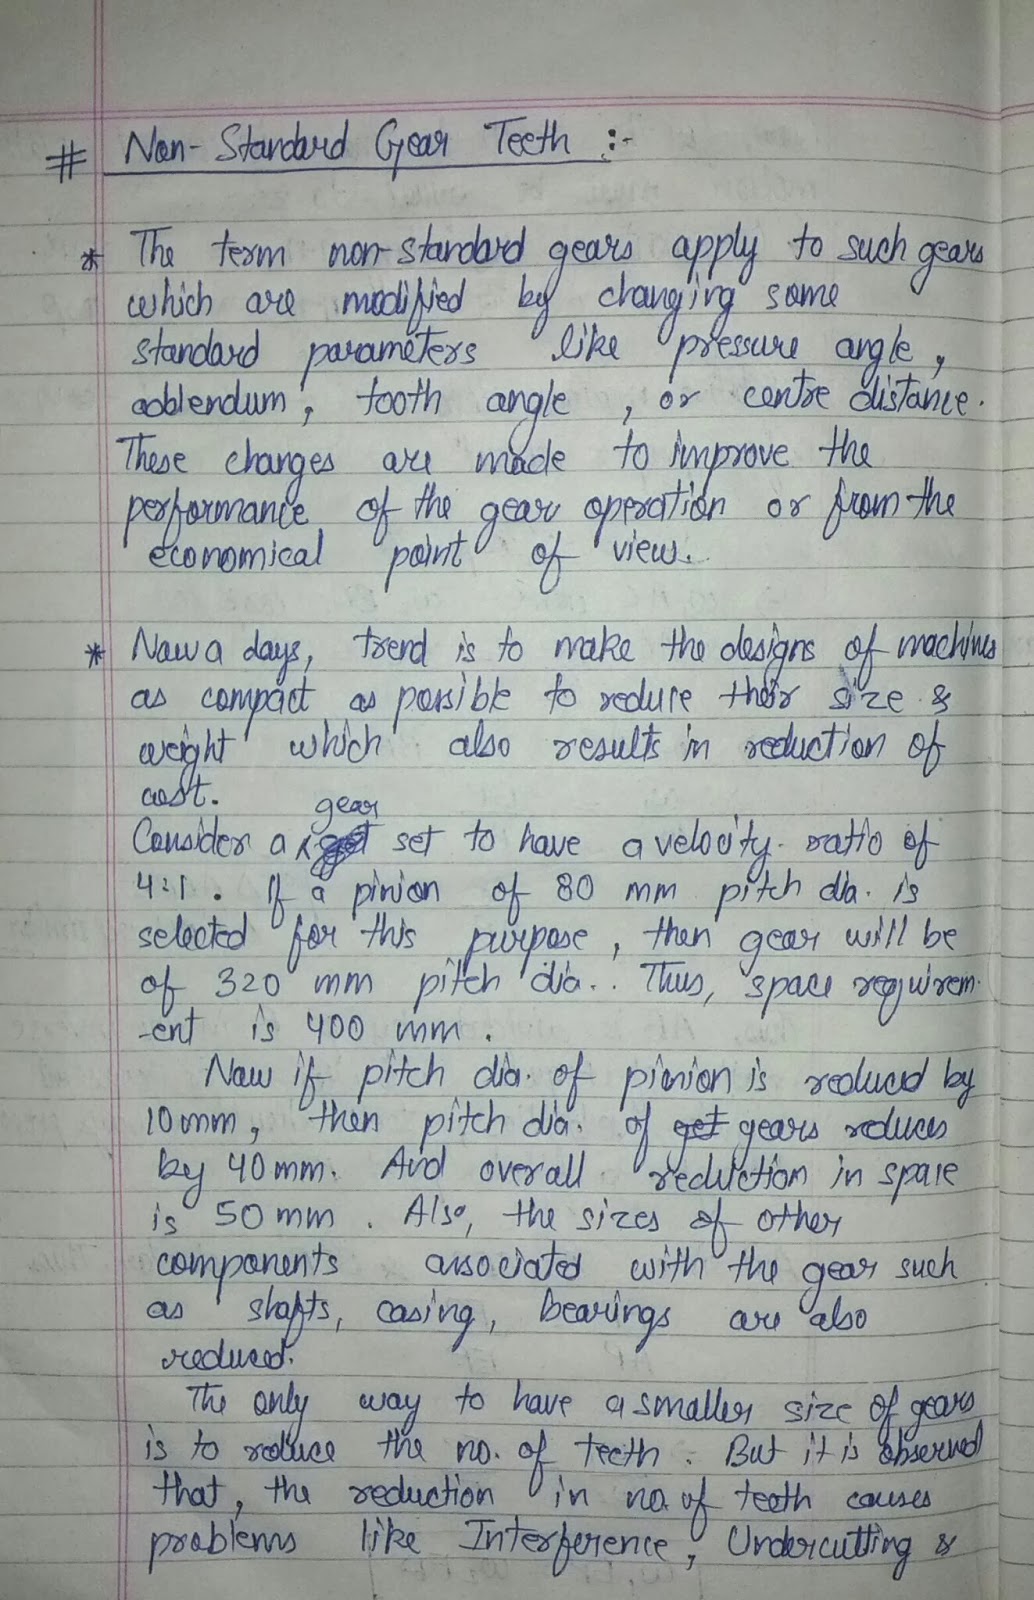 # Non-Standard Gear Teeth :-
* The term non-standard gears apply to such gears
which are modified by changing some
standard parameters like pressure angle,
addendum, tooth angle, or centre distance.
These changes are made to improve the
performance of the gear operation or from the
economical point of view.
* Now a days, trend is to make the designs of machines
as compact as possible to reduce their size &
weight which also results in reduction of
cost.
Consider a gear set to have a velocity ratio of
4:1. If a pinion of 80 mm pitch dia. is
selected for this purpose, then gear will be
of 320 mm pitch dia.. Thus, space requirem-
-ent is 400 mm.
Now if pitch dia. of pinion is reduced by
10mm, then pitch dia. of gears reduces
by 40mm. And overall reduction in space
is 50mm. Also, the sizes of other
components associated with the gear such
as shafts, casing, bearings are also
reduced.
The only way to have a smaller size of gears
is to reduce the no. of teeth. But it is observed
that, the reduction in no. of teeth causes
problems like Interference, Undercutting &